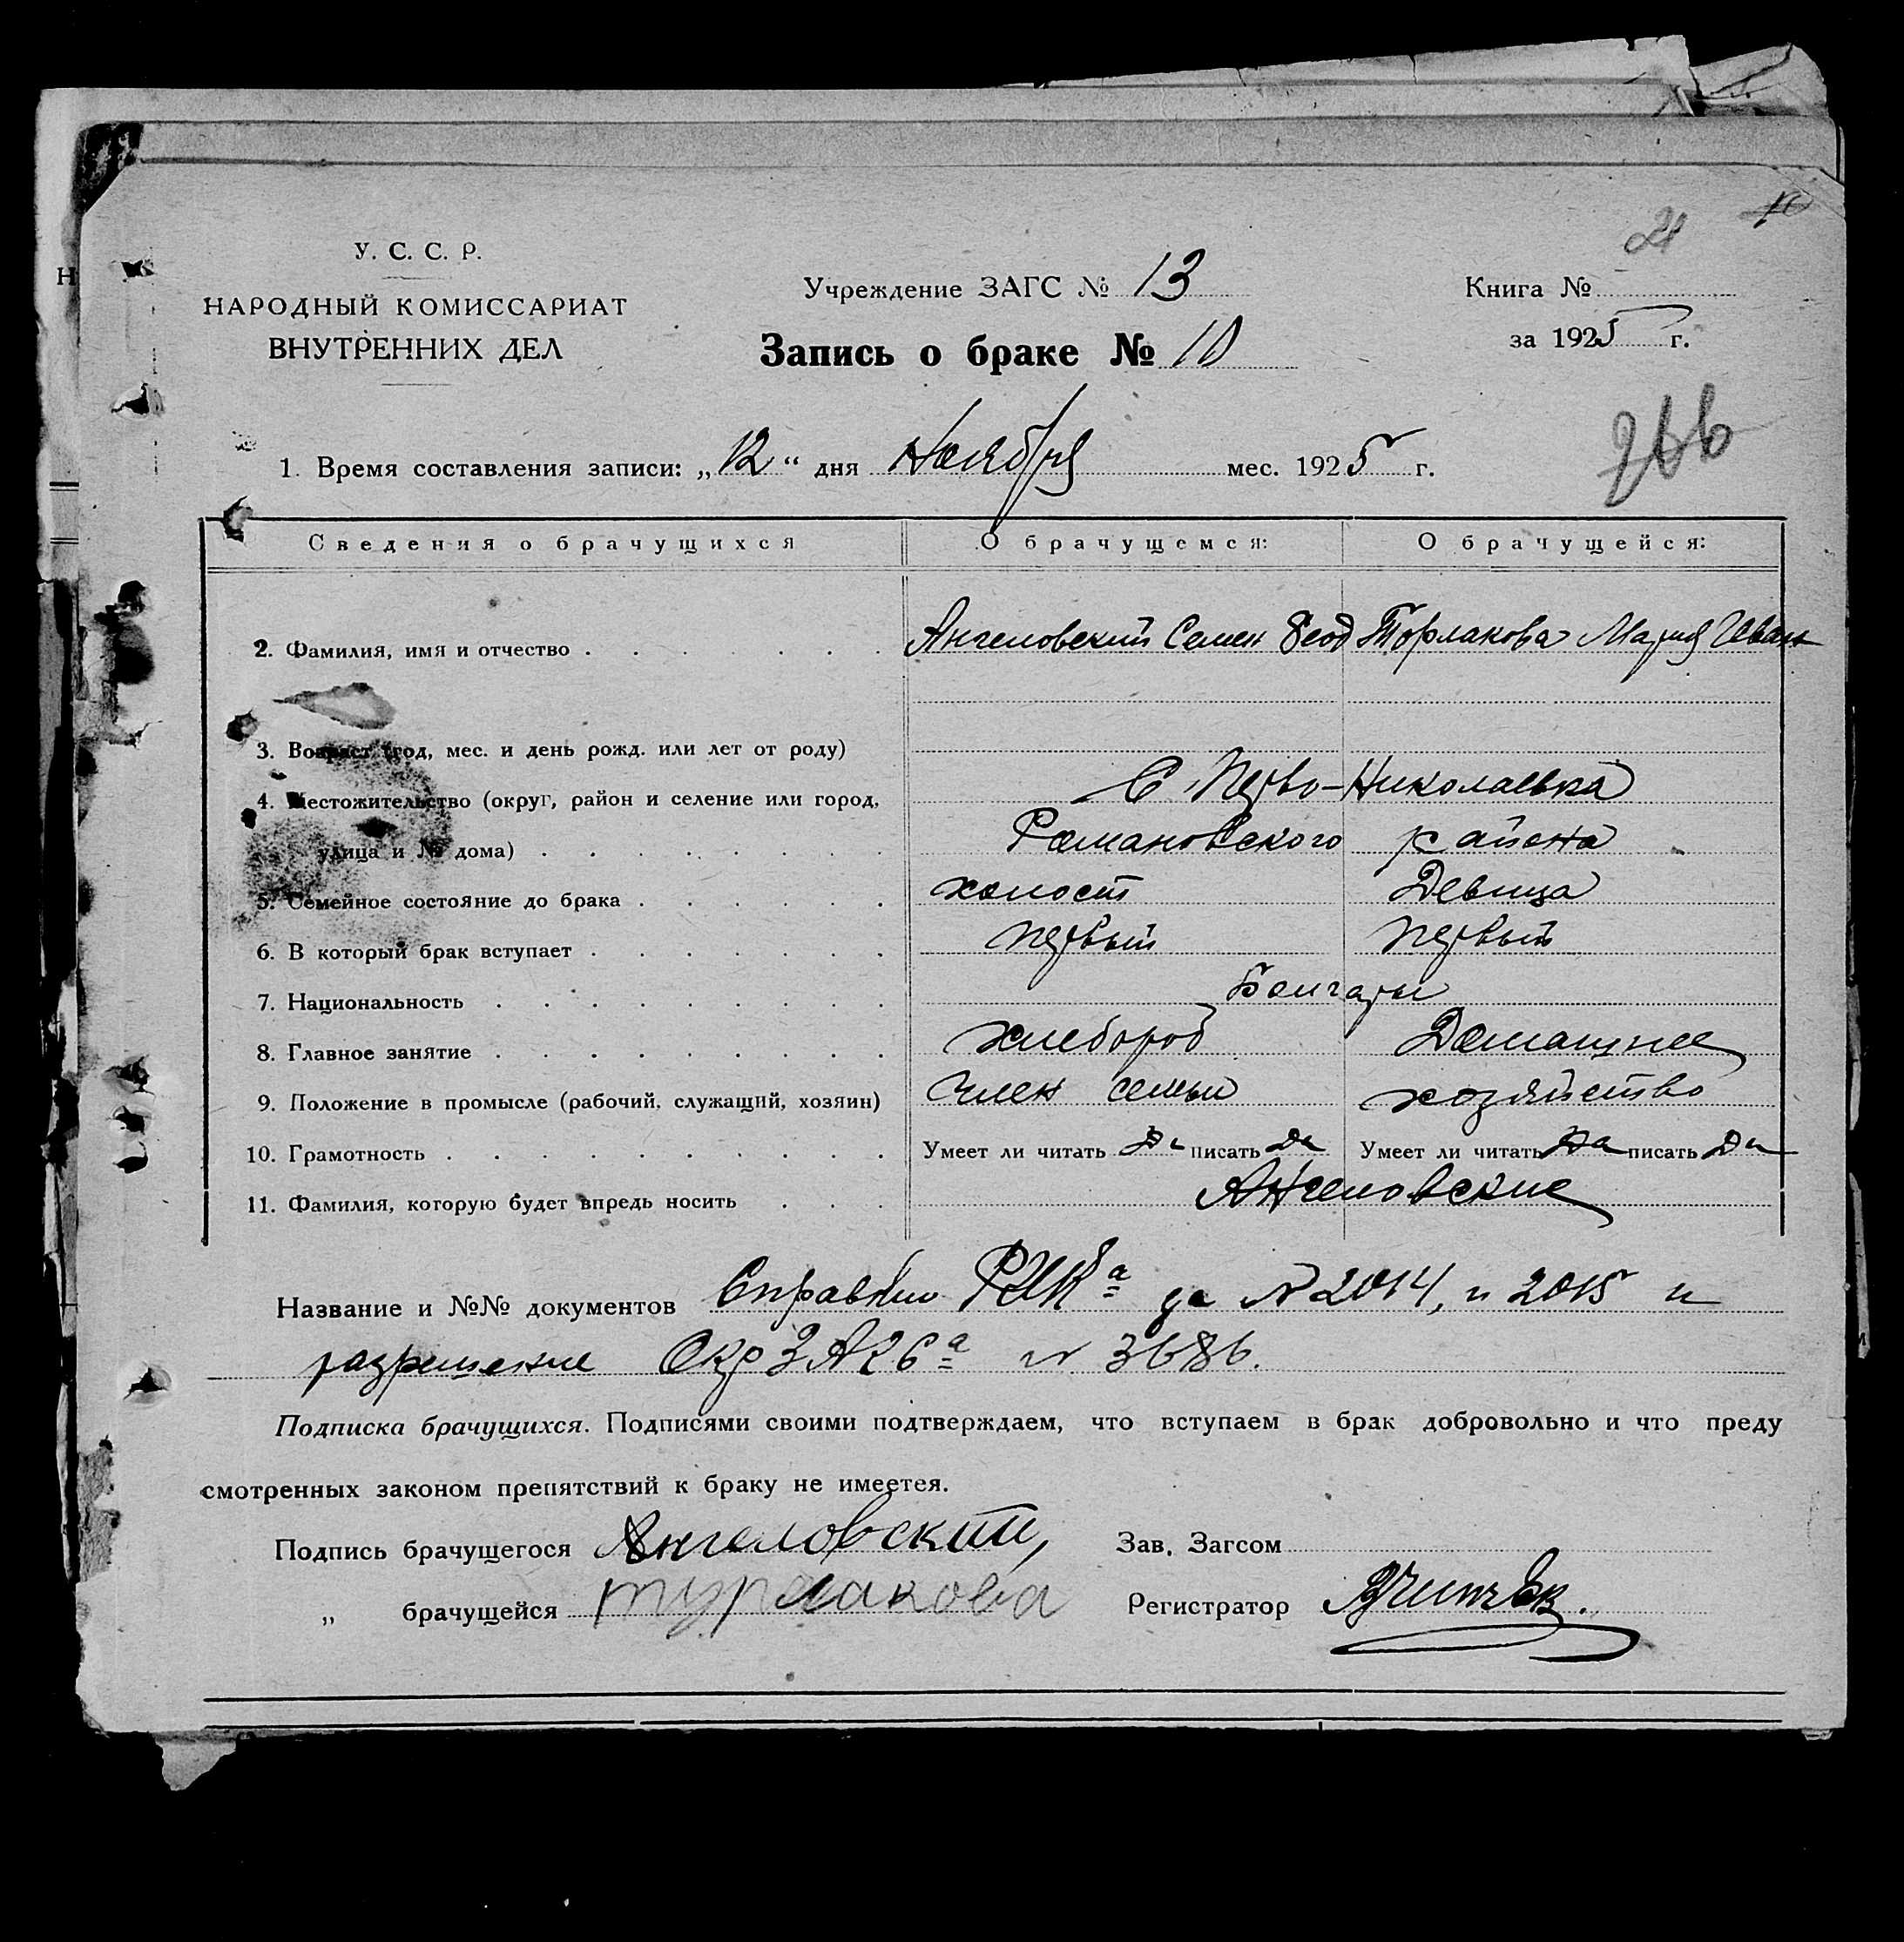 У. С. С. Р.
НАРОДНЫЙ КОМИССАРИАТ
ВНУТРЕННИХ ДЕЛ
Учреждение ЗАГС № 13
Запись о браке № 10
Книга №
за 1925 г.
1. Время составления записи: „12“ дня Ноября мес. 1925 г.
Сведения о брачущихся О брачущемся: О брачущейся:
2. Фамилия, имя и отчество Ангеловский Семен Феод Торлакова Мария Иван
3. Возраст (год, мес. и день рожд. или лет от роду)
4. Местожительство (округ, район и селение или город, С Перво-Николаевка
улица и № дома) Романовского района
5. Семейное состояние до брака холост Девица
6. В который брак вступает первый первый
7. Национальность Болгары
8. Главное занятие хлебороб Домашнее
9. Положение в промысле (рабочий, служащий, хозяин) Член семьи хозяйство
10. Грамотность Умеет ли читать Да писать Да Умеет ли читать Да писать Да
11. Фамилия, которую будет впредь носить Ангеловские
Название и №№ документов Справки РИКа за № 2014, и 2015 и
разрешение ОкрЗАГСа № 3686.
Подписка брачущихся. Подписями своими подтверждаем, что вступаем в брак добровольно и что преду
смотренных законом препятствий к браку не имеется.
Подпись брачущегося Ангеловский, Зав. Загсом
„ брачущейся турлакова Регистратор